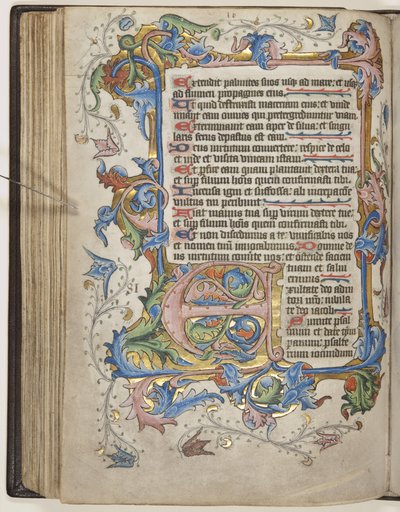 Extendit palmites suos usq; ad mare: et usq;
ad flumen propagines eius.
Ut quid destruxisti maceriam eius: et vinde
miant eam omnes qui pretergrediuntur viam
Exterminavit eam aper de silva: et singu
laris ferus depastus est eam.
Deus virtutum convertere: respice de celo
et vide et visita vineam istam.
Et perfice eam quam plantavit dextera tua:
et sup filium hois quem confirmasti tibi.
Incensa igni et suffossa: ab increpatione
vultus tui peribunt.
Fiat manus tua sup virum dextere tue:
et sup filium hois quem confirmasti tibi.
Et non discedimus a te: vivificabis nos
et nomen tuum invocabimus. Domine de
us virtutum converte nos: et ostende faciem
tuam et salvi
erimus.
Exultate deo adiu
tori nro: iubila
te deo iacob.
Sumite psal
mum et date tym
panum: psalte
rium iocundum